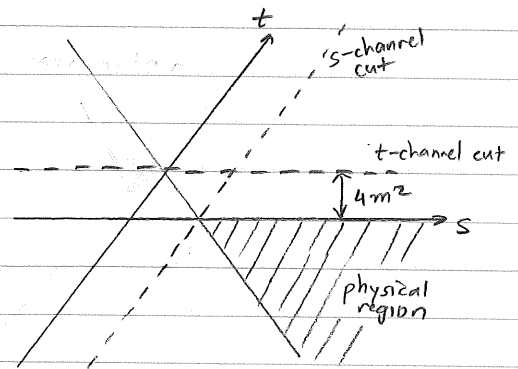 t
s-channel
cut
t-channel cut
4m²
s
physical
region